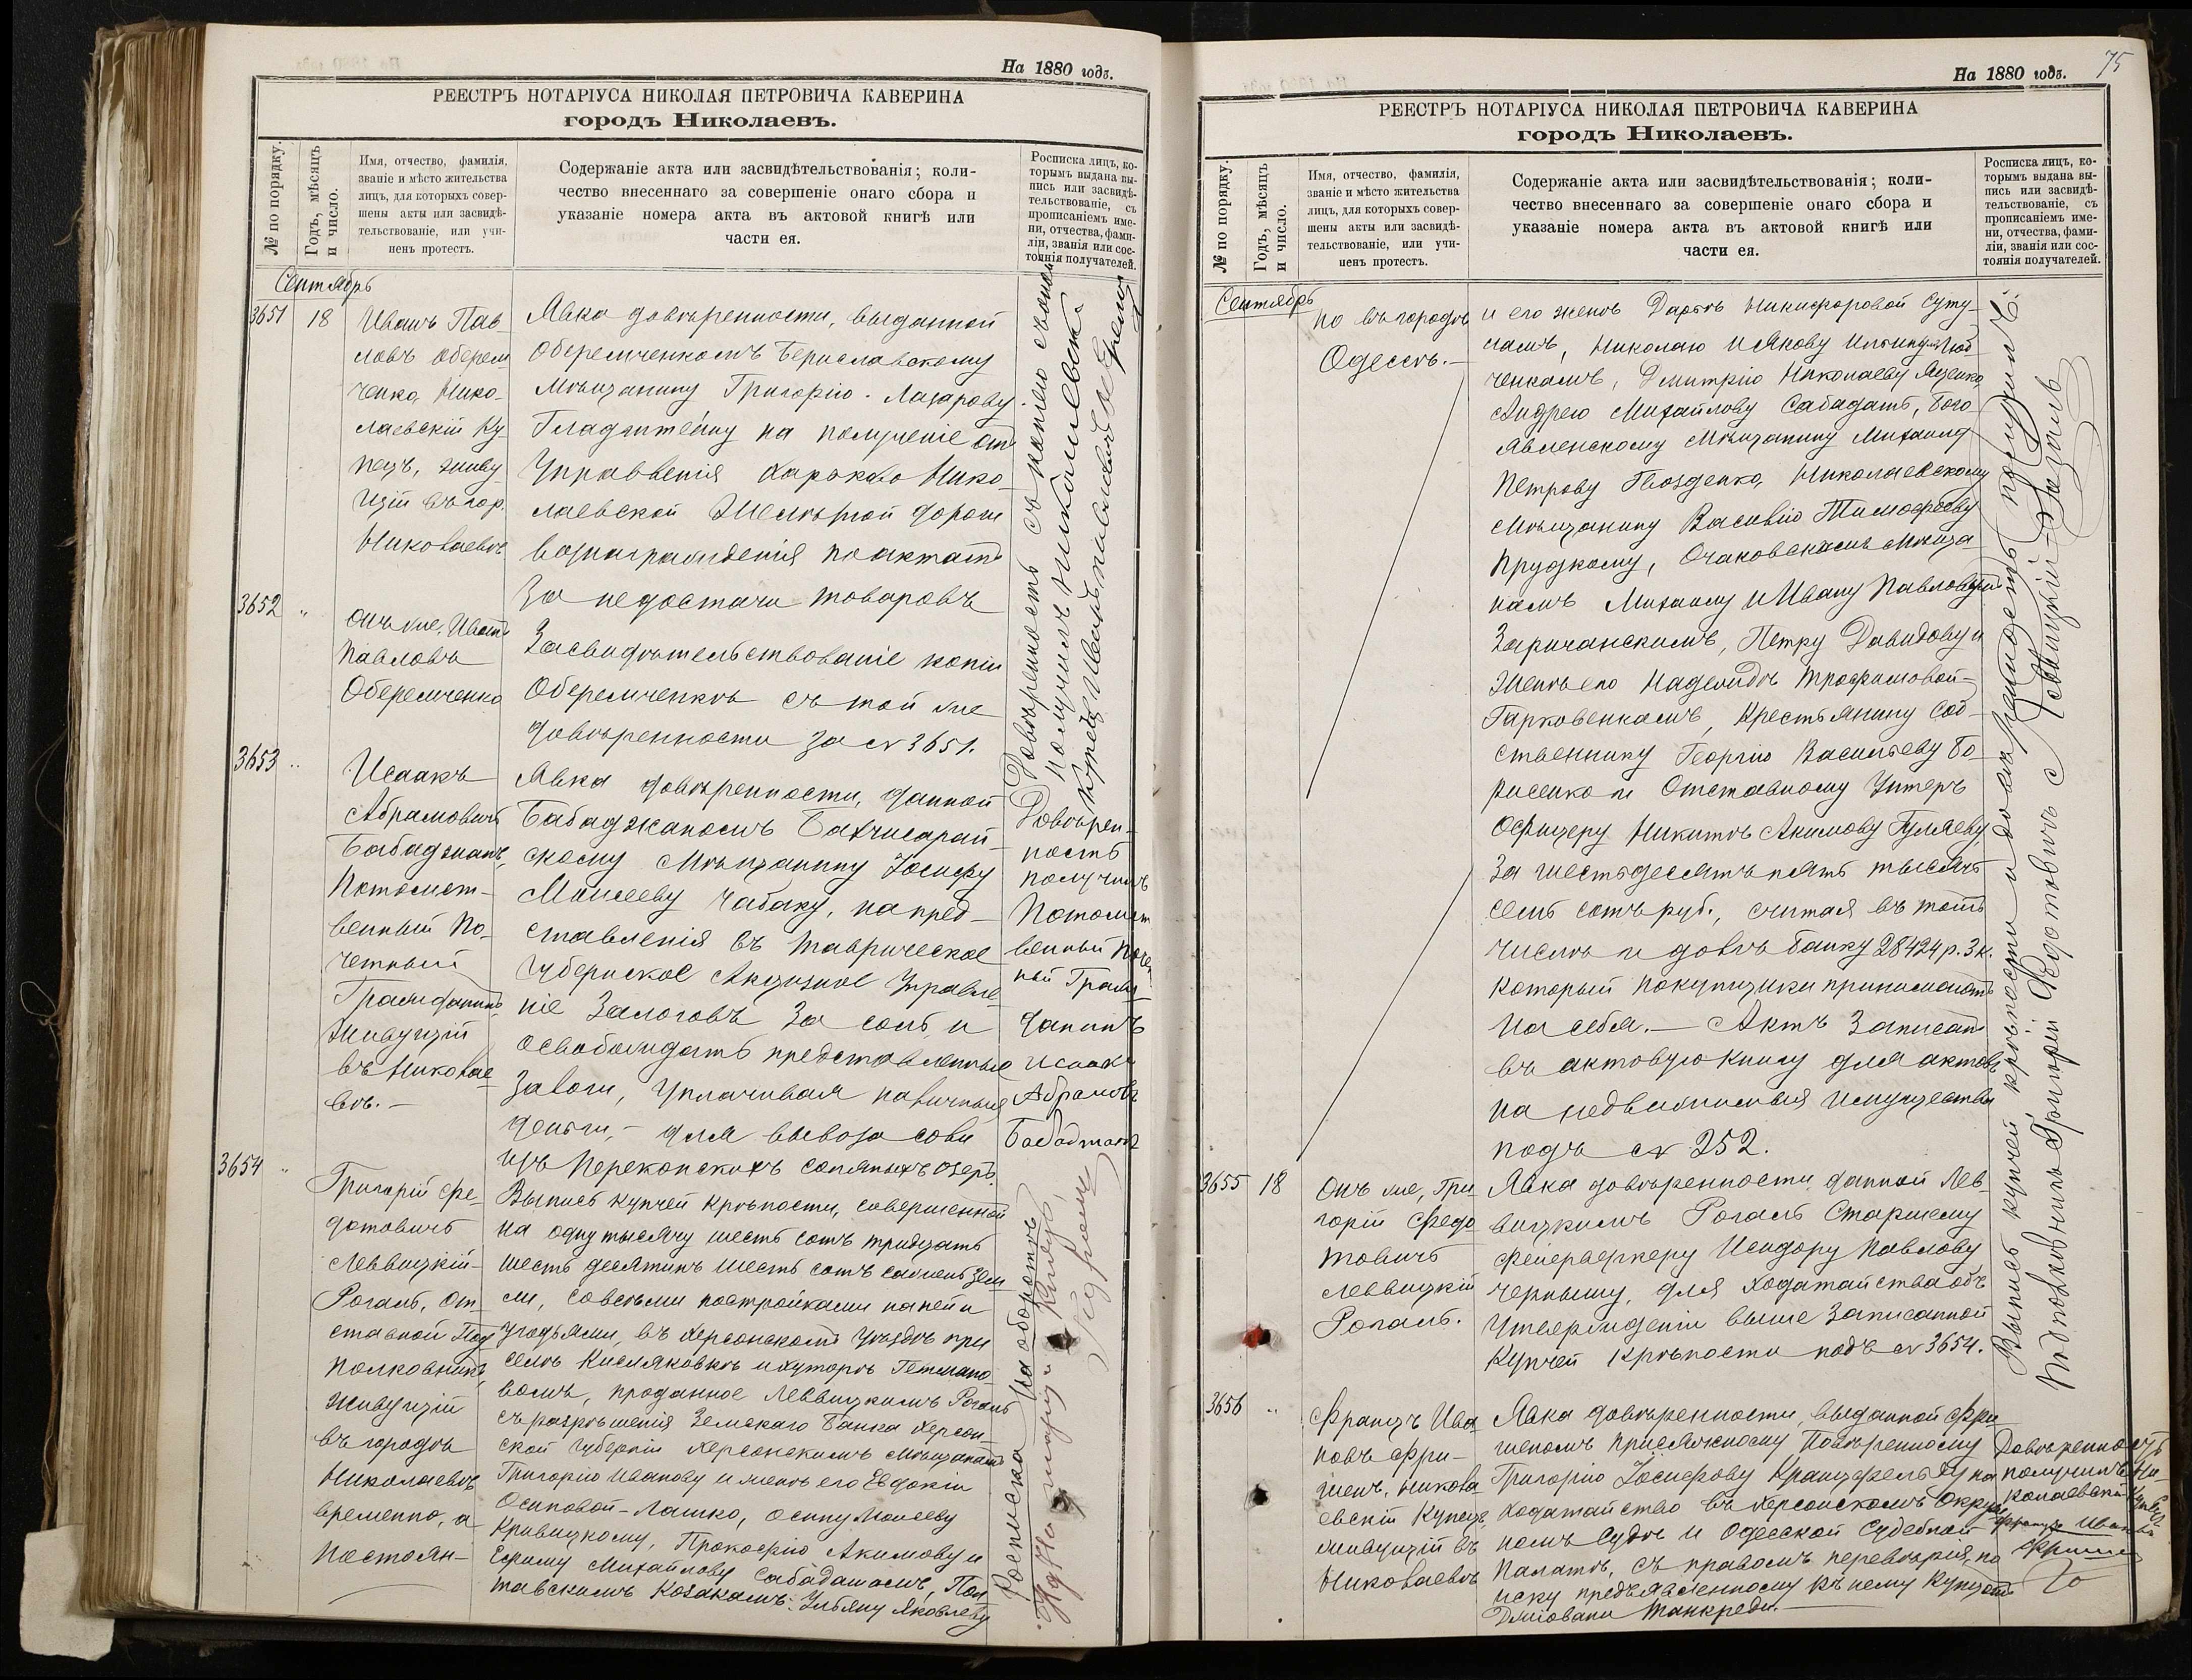 На 1880 годъ.
РЕЕСТРЪ НОТАРІУСА НИКОЛАЯ ПЕТРОВИЧА КАВЕРИНА
городъ Николаевъ.
№ по порядку.
Годъ, мѣсяцъ
и число.
Имя, отчество, фамилія,
званіе и мѣсто жительства
лицъ, для которыхъ совер-
шены акты или засвидѣ-
тельствованіе, или учи-
ненъ протестъ.
Содержаніе акта или засвидѣтельствованія; коли-
чество внесеннаго за совершеніе онаго сбора и
указаніе номера акта въ актовой книгѣ или
части ея.
Росписка лицъ, ко-
торымъ выдана вы-
пись или засвидѣ-
тельствованіе, съ
прописаніемъ име-
ни, отчества, фами-
ліи, званія или сос-
тоянія получателей.
Сентябрь
3651
18
Иванъ Пав
ловъ Оберем
ченко, Нико-
лаевскій Ку-
пецъ, живу
щій въ гор.
Николаевѣ
Явка довѣренности, выданной
Оберемченкомъ Бериславскому
Мѣщанину Григорію Лазарову
Гладштейну на полученіе отъ
Управленія Харьково Нико-
лаевской Желѣзной дороги
вознагражденія по актамъ
за недостачи товаровъ
Довѣренность съ копіею съ оной
получилъ Николаевскій
Купецъ Иванъ Павловъ
3652
"
Онъ же, Иванъ
Павловъ
Оберемченко
Засвидѣтельствованіе копіи
Оберемченкѣ съ той же
довѣренности за № 3651.
3653
"
Исаакъ
Абрамовичъ
Бабаджанъ,
Потомст-
венный По-
четный
Гражданинъ
живущій
въ Николае
вѣ.—
Явка довѣренности, данной
Бабаджаномъ Бахчисарай-
скому Мѣщанину Іосифу
Моисееву Чабаку, на пред-
ставленія въ Таврическое
Губернское Акцизное Управле-
ніе Залоговъ за соль, и
освобождать представленные
залоги, уплачивая наличныя
деньги,— для вывоза соли
изъ Перекопскихъ соляныхъ озеръ.
Довѣрен-
ность
получилъ
Потомст
венный Поче
ный Граж-
данинъ
Исаакъ
Абрамовъ
Бабаджанъ
3654
"
Григорій Ѳе-
дотовичъ
Леввицкій-
Рогаль, От-
ставной Под
полковникъ,
живущій
въ городѣ
Николаевѣ
временно, а
постоян-
Выпись купчей крѣпости, совершенной
на одну тысячу шесть сотъ тридцать
шесть десятинъ шесть сотъ сажень зем
ли, со всѣми постройками на ней и
угодьями, въ Херсонскомъ уѣздѣ при
селѣ Кисляковкѣ и хуторѣ Гетмано-
вомъ, проданное Леввицкимъ Рогаль
съ разрѣшенія Земскаго Банка Херсон-
ской Губерніи Херсонскимъ Мѣщанамъ
Григорію Иванову и женѣ его Евдокіи
Осиповой-Лашко, Осипу Моисееву
Кривицкому, Прокофію Акимову и
Ефиму Михайлову Сабадашамъ, Пол
тавскимъ Козакамъ: Ульяну Яковлеву
Росписка на оборотѣ
На 1880 годъ.
75
РЕЕСТРЪ НОТАРІУСА НИКОЛАЯ ПЕТРОВИЧА КАВЕРИНА
городъ Николаевъ.
№ по порядку.
Годъ, мѣсяцъ
и число.
Имя, отчество, фамилія,
званіе и мѣсто жительства
лицъ, для которыхъ совер-
шены акты или засвидѣ-
тельствованіе, или учи-
ненъ протестъ.
Содержаніе акта или засвидѣтельствованія; коли-
чество внесеннаго за совершеніе онаго сбора и
указаніе номера акта въ актовой книгѣ или
части ея.
Росписка лицъ, ко-
торымъ выдана вы-
пись или засвидѣ-
тельствованіе, съ
прописаніемъ име-
ни, отчества, фами-
ліи, званія или сос-
тоянія получателей.
Сентябрь
но въ городѣ
Одессѣ.—
и его женѣ Дарьѣ Никифоровой
Николаю и Якову
ченкамъ, Дмитрію Николаеву Яценко,
Андрею Михайлову Сабадашъ, Бого
явленскому Мѣщанину Михаилу
Петрову Гвозденко, Николаевскому
Мѣщанину Василію Тимофѣеву
Прудкому, Очаковскимъ Мѣща-
намъ Михаилу и Ивану Павловымъ
Заричанскимъ, Петру Давидову и
женѣ его Надеждѣ Трофимовой-
Гарковенкамъ, Крестьянину Соб-
ственнику Георгію Васильеву Бо-
рисенко и Отставному Унтеръ
Офицеру Никитѣ Акимову Гуляеву,
за шестьдесятъ пять тысячъ
семь сотъ руб., считая въ томъ
числѣ и долгъ банку 28424 р. 3 к.
который покупщики принимаютъ
на себя.— Актъ записанъ
въ актовую книгу для актовъ
на недвижимыя имущества
подъ № 252.
Выпись купчей крѣпости и довѣренность получилъ
Подполковникъ Григорій Ѳедотовичъ Левицкій-Рогаль
3655
18
Онъ же, Гри
горій Ѳедо
товичъ
Леввицкій
Рогаль.
Явка довѣренности данной Лев-
вицкимъ Рогаль Старшему
фейерверкеру Исидору Павлову
Черныму, для ходатайства объ
утвержденіи выше записанной
купчей крѣпости подъ № 3654.
3656
"
Францъ Ива
новъ Фри-
шенъ, Никола
евскій Купецъ,
живущій въ
Николаевѣ
Явка довѣренности, выданной Фри
шеномъ Присяжному Повѣренному
Григорію Іосифову Кранцфельду на
ходатайство въ Херсонскомъ Окруж
номъ Судѣ и Одесской Судебной
Палатѣ, съ правомъ передовѣрія, по
иску предъявленному къ нему купцомъ
Джіовани Танкреди.
Довѣренность
получилъ Ни-
колаевскій Купецъ
Францъ Ивановъ
Фришен